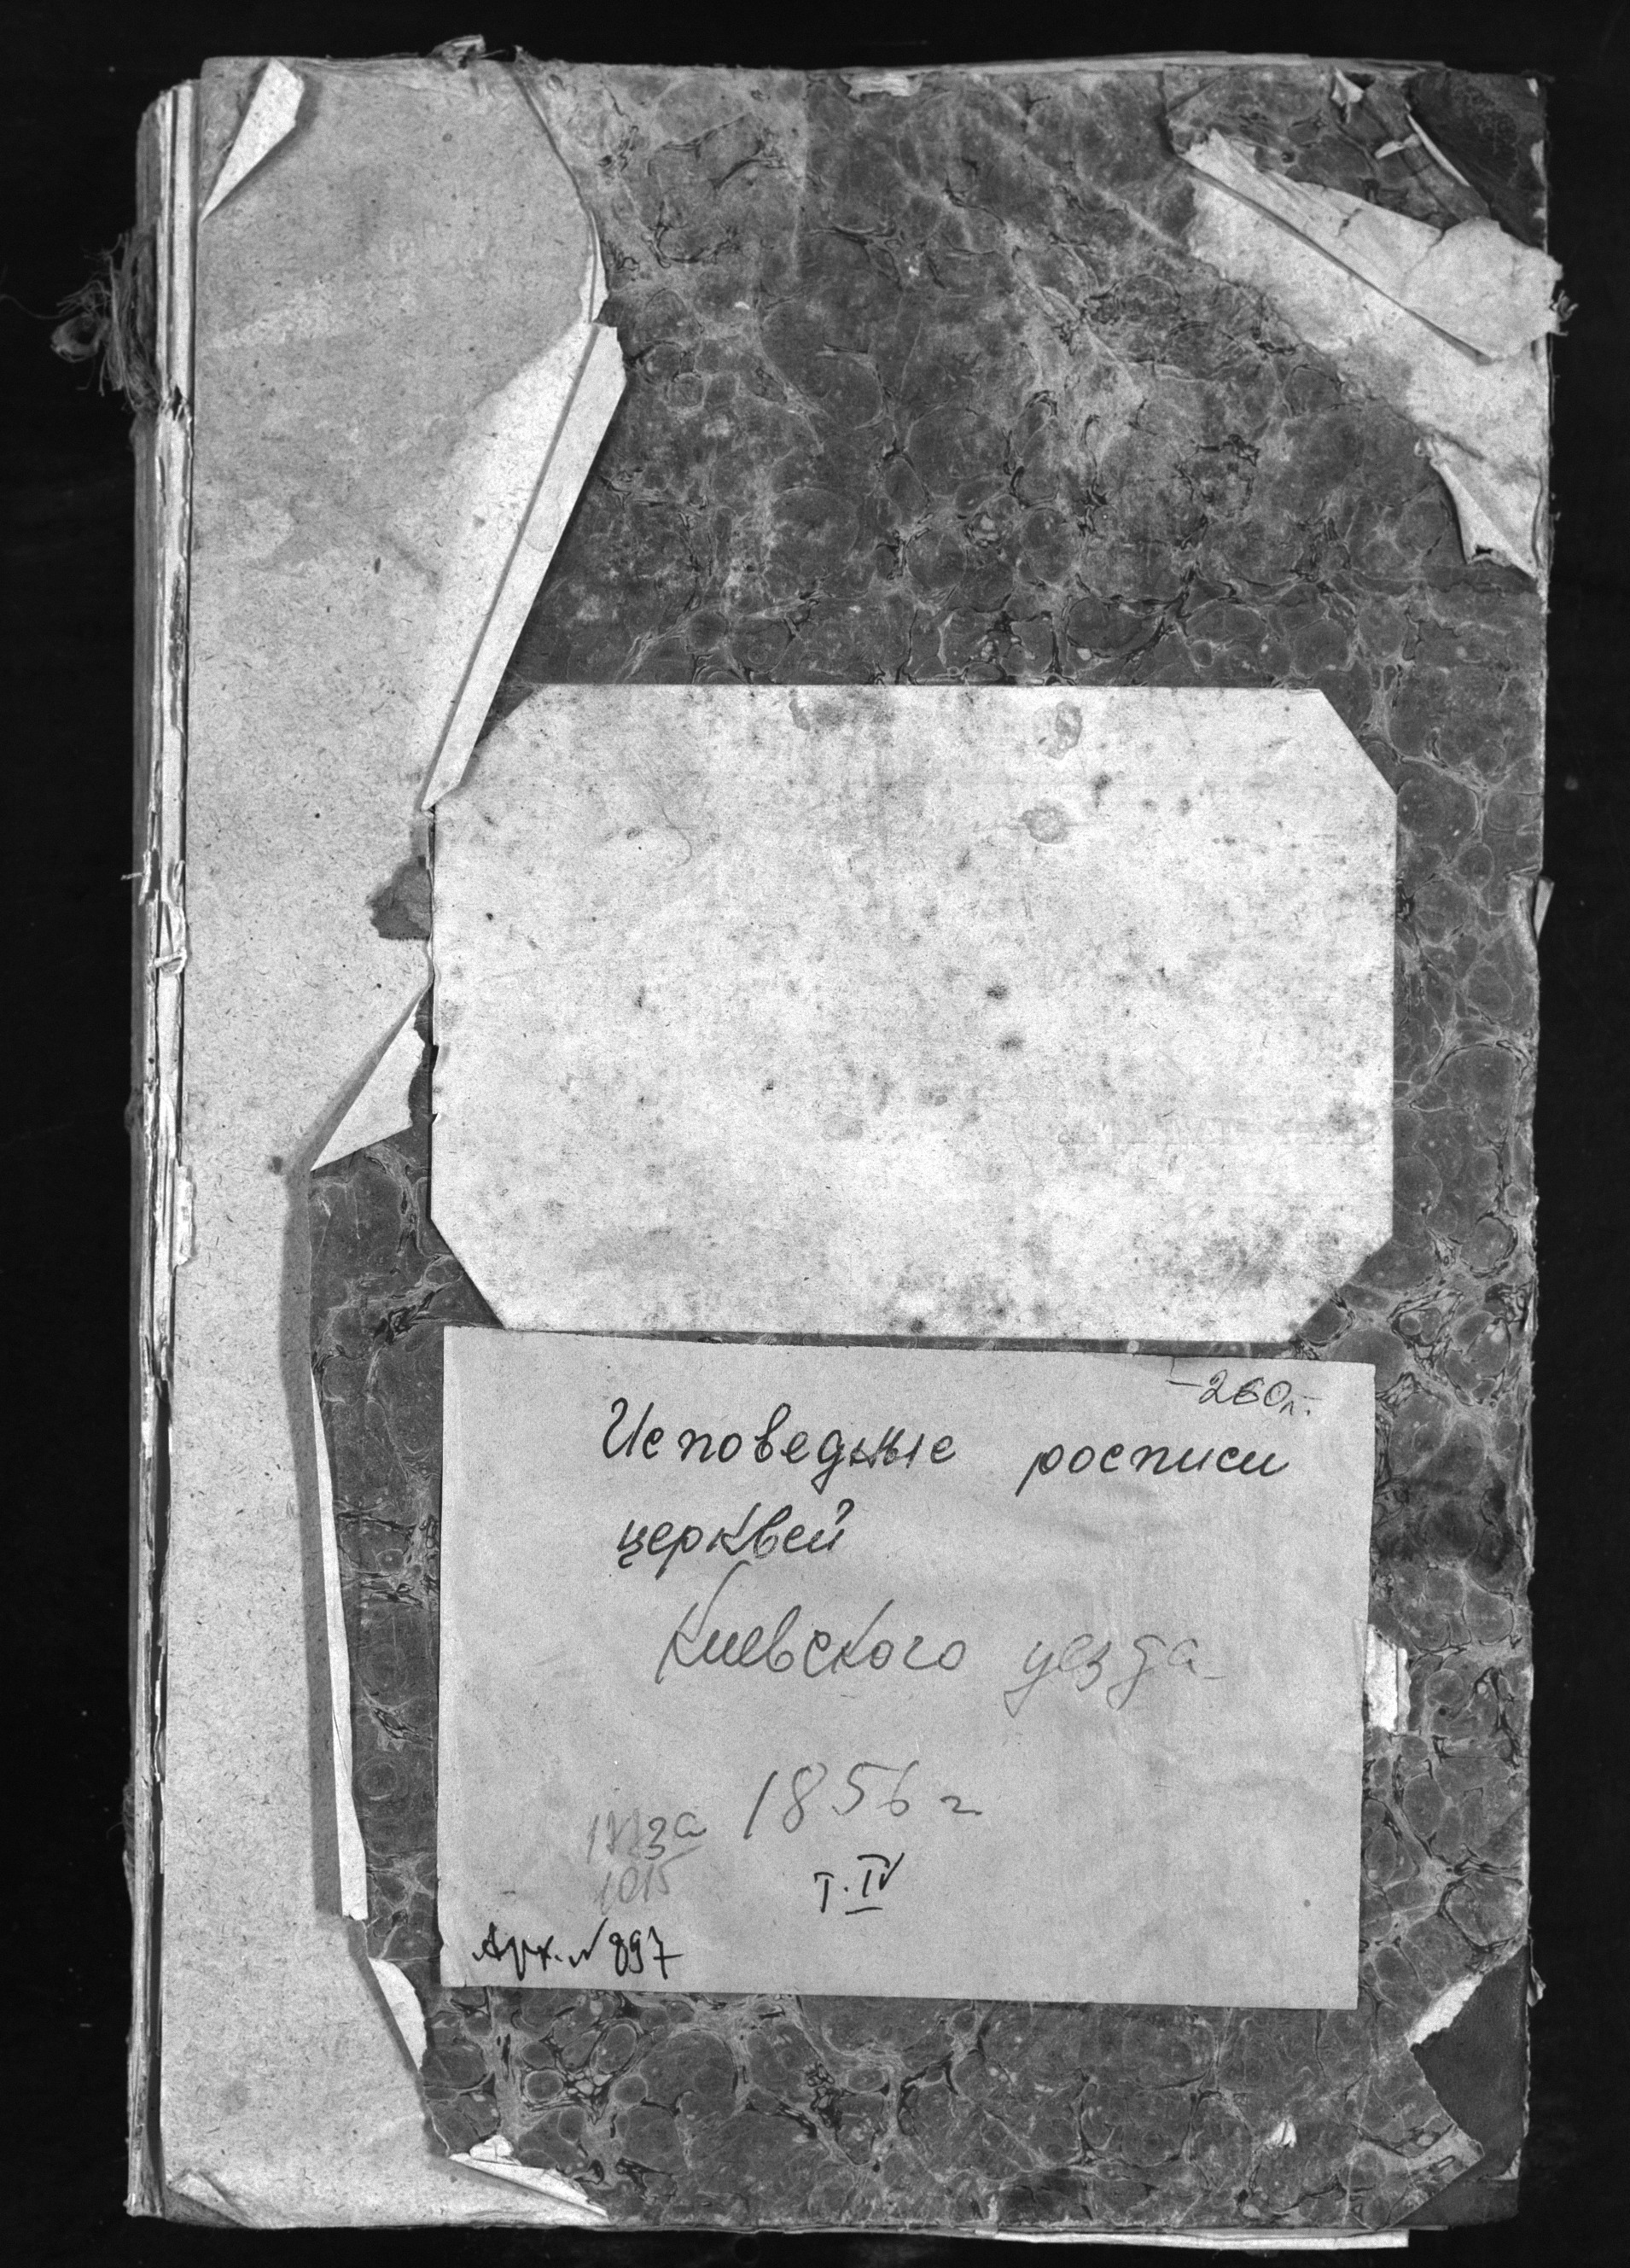 -260л.
Исповедные росписи
церквей
Киевского уезда
1856 г
Т. IV
Арх. № 897